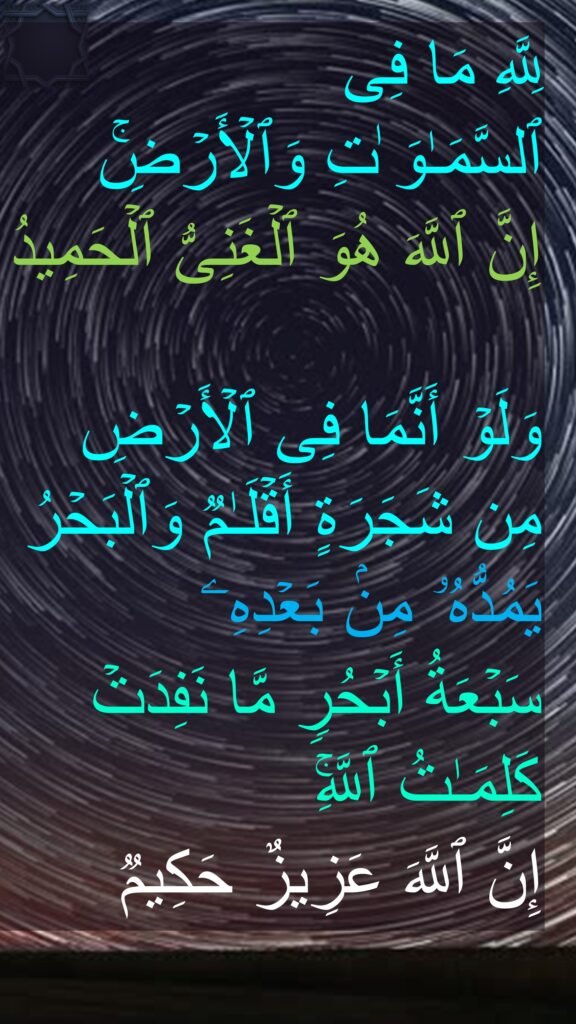 لِلَّهِ مَا فِى
ٱلسَّمَـٰوَ ٰتِ وَٱلۡأَرۡضِۚ
إِنَّ ٱللَّهَ هُوَ ٱلۡغَنِىُّ ٱلۡحَمِیدُ
وَلَوۡ أَنَّمَا فِى ٱلۡأَرۡضِ
مِن شَجَرَةٍ أَقۡلَـٰمࣱ وَٱلۡبَحۡرُ
یَمُدُّهُۥ مِنۢ بَعۡدِهِۦ
سَبۡعَةُ أَبۡحُرࣲ مَّا نَفِدَتۡ
كَلِمَـٰتُ ٱللَّهِۚ
إِنَّ ٱللَّهَ عَزِیزٌ حَكِیمࣱ